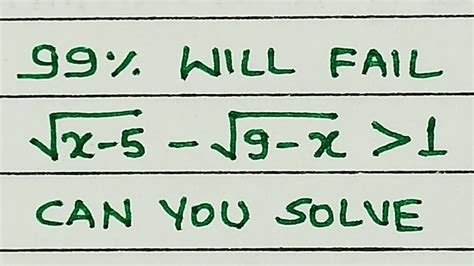 99% WILL FAIL
√x-5 - √9-x > 1
CAN YOU SOLVE